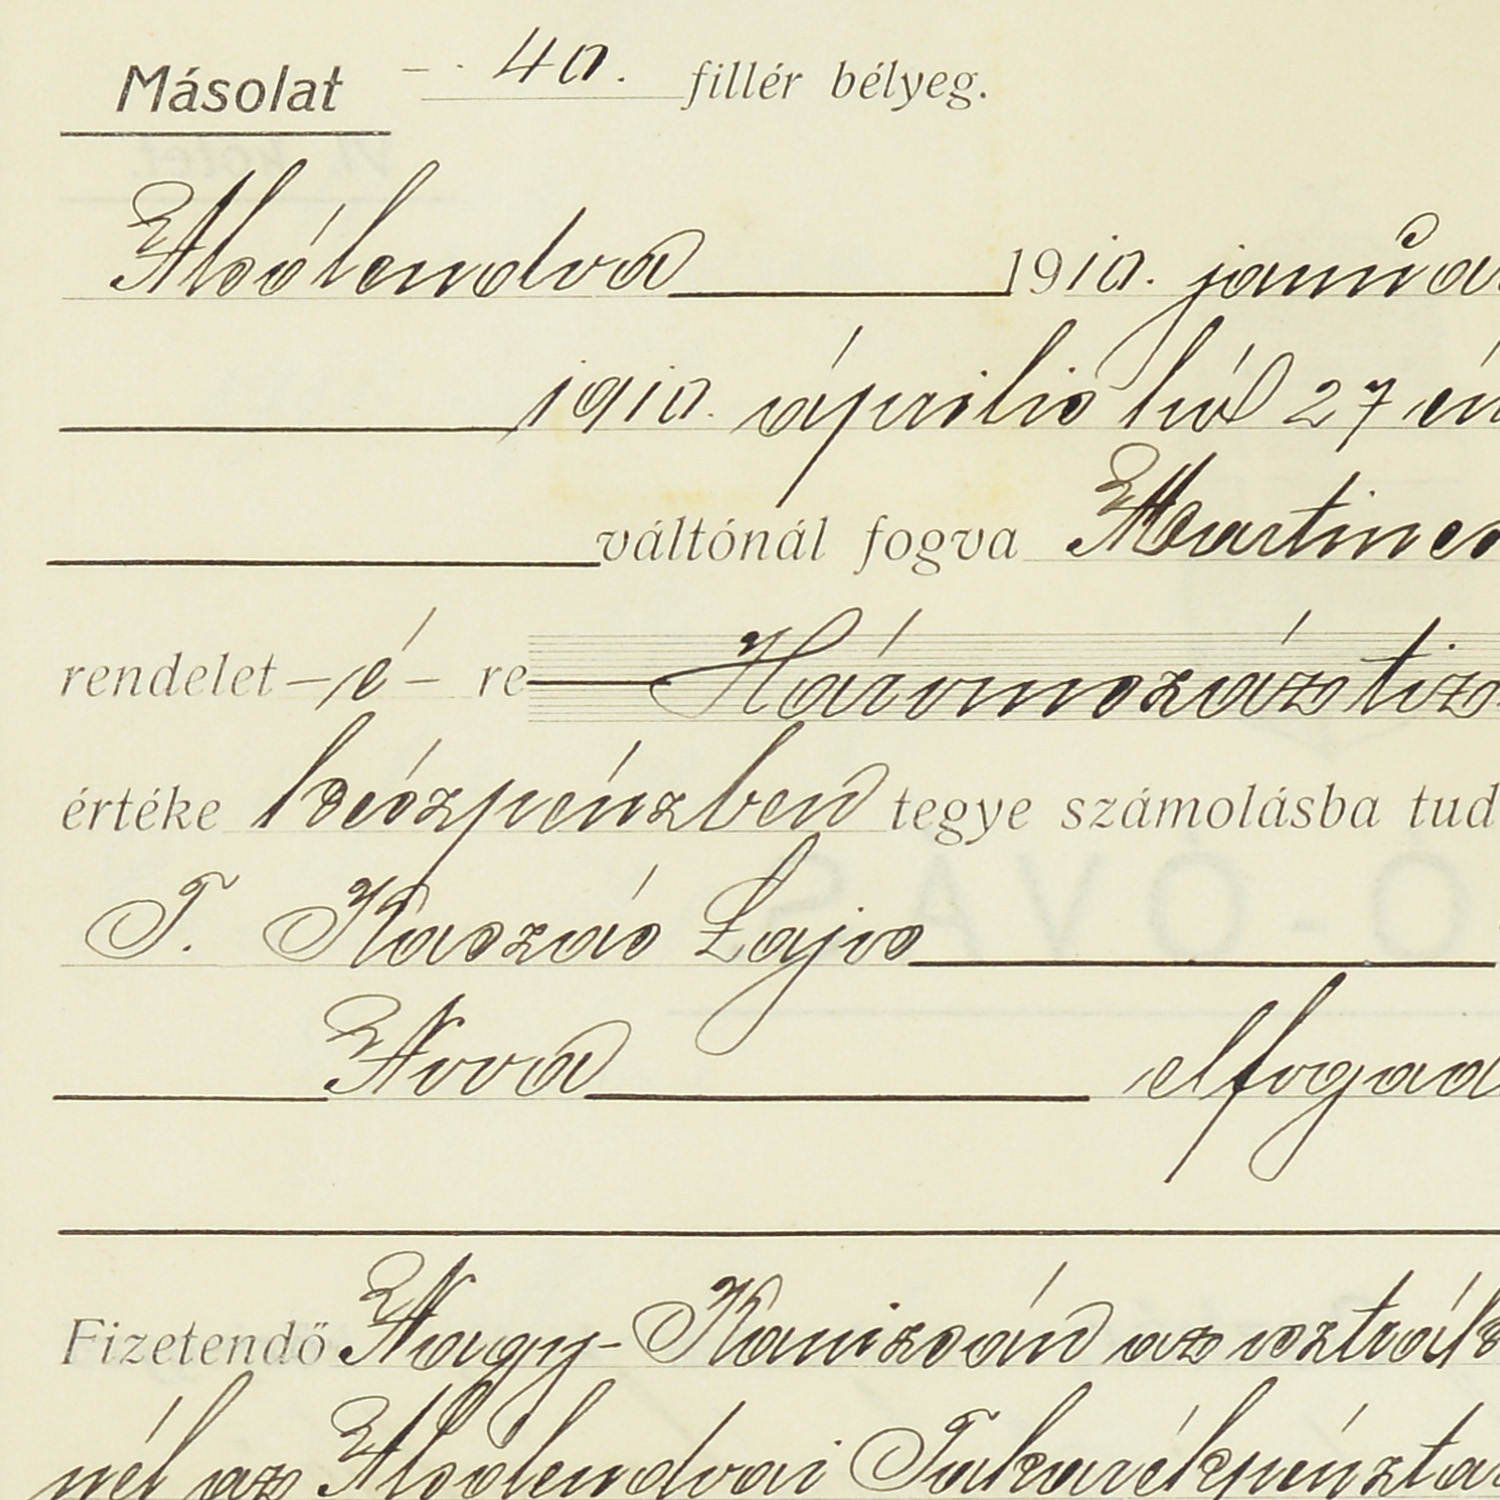 Másolat - . 40. fillér bélyeg.
Alsólendva 1910. január
1910. április hó 27 én
váltónál fogva Martinen
rendelet - é - re Háromszáztiz
értéke készpénzben tegye számolásba tud
T. Kaszás Lajos
Nova elfogad
Fizetendő Nagy-Kanizsán az osztrák
nél az Alsólendvai Takarékpénztá